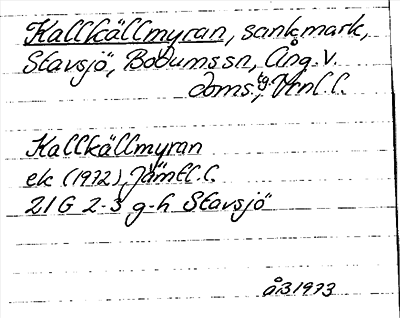 Kallkällmyran, sankmark,
Stavsjö, Bodums sn, Ång. V.
doms. tg., Vrnl. l.
Kallkällmyran
ek (1972), Jämtl. l.
21G 2-3 g-h Stavsjö
ÅB 1973